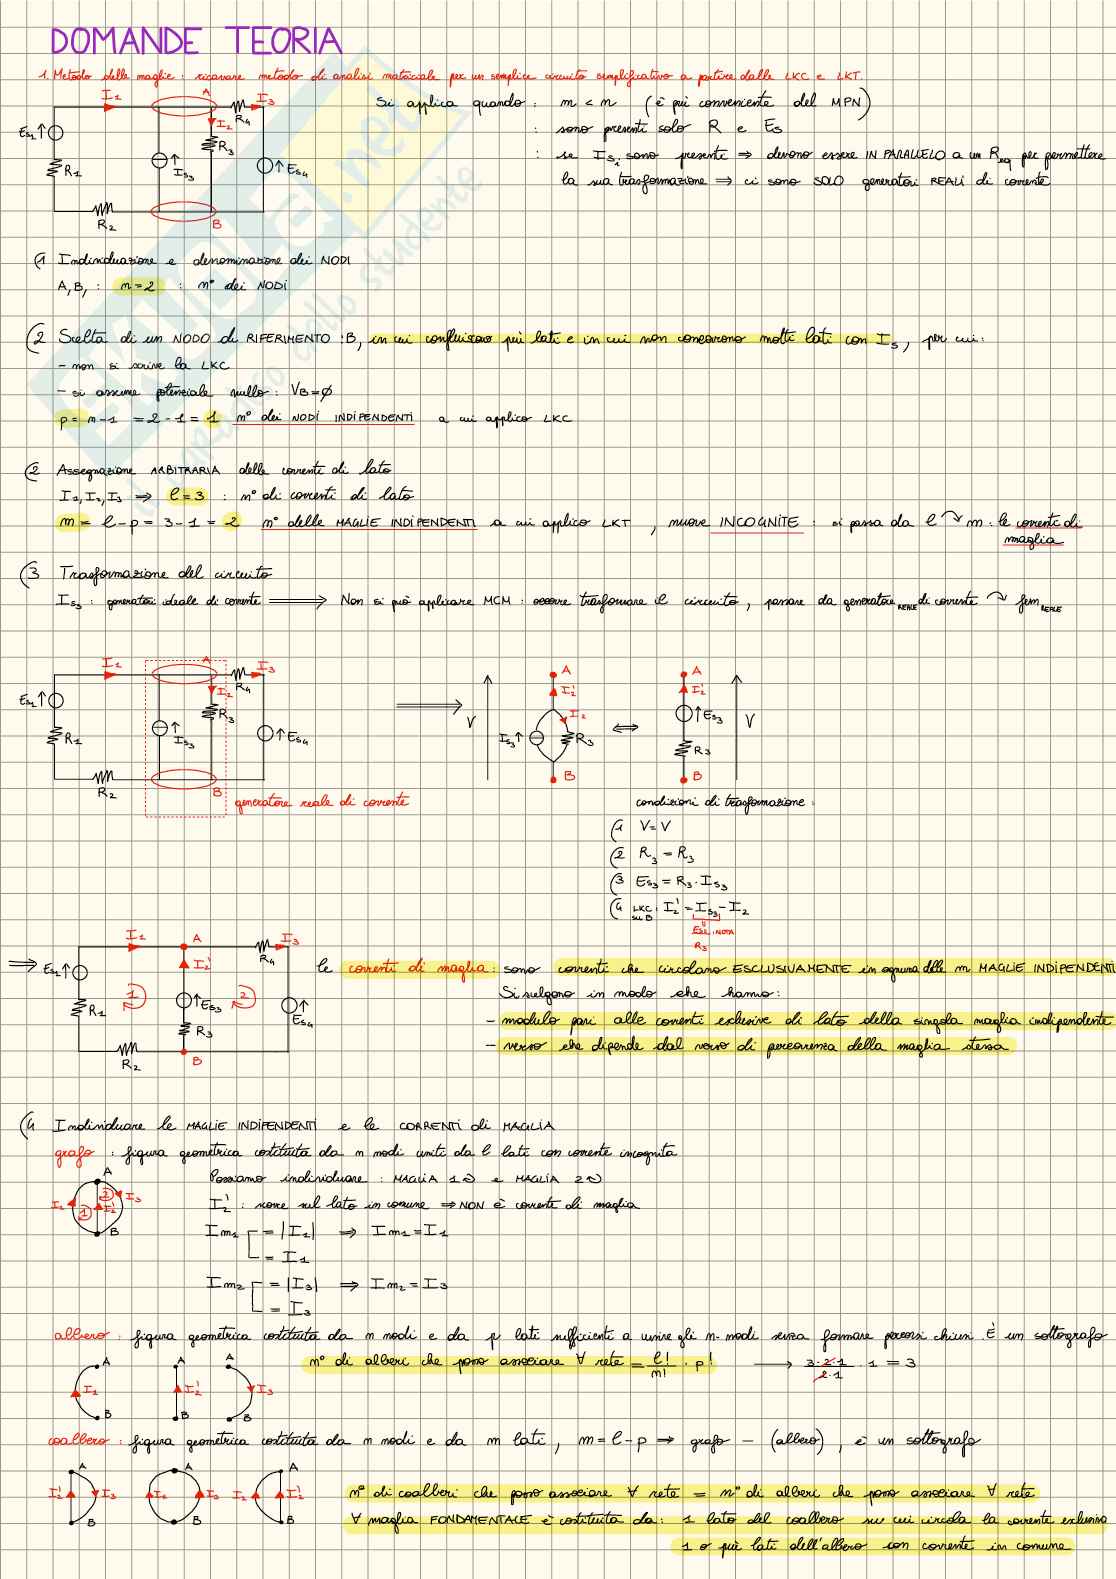 DOMANDE TEORIA
1. Metodo delle maglie: ricavare metodo di analisi matriciale per un semplice circuito semplificativo a partire dalle LKC e LKT.
Si applica quando: m < n (è più conveniente del MPN)
: sono presenti solo R e Es
: se Isi sono presenti ⇒ devono essere IN PARALLELO a un Req per permettere
la sua trasformazione ⇒ ci sono SOLO generatori REALI di corrente
I1 A I3 R4 I2 Es1 R3 Is3 Es4 R1 R2 B
(1 Individuazione e denominazione dei NODI
A, B, : n=2 : n° dei NODI
(2 Scelta di un NODO di RIFERIMENTO: B, in cui confluiscono più lati e in cui non concorrono molti lati con Is, per cui:
- non si scrive la LKC
- si assume potenziale nullo: VB=∅
p = n-1 = 2-1 = 1 n° dei NODI INDIPENDENTI a cui applico LKC
(2 Assegnazione ARBITRARIA delle correnti di lato
I1, I2, I3 ⇒ l=3 : n° di correnti di lato
m = l-p = 3-1 = 2 n° delle MAGLIE INDIPENDENTI a cui applico LKT, nuove INCOGNITE: si passa da l ↷ m: le correnti di
maglia
(3 Trasformazione del circuito
Is3: generatori ideale di corrente ⟹ Non si può applicare MCM: occorre trasformare il circuito, passare da generatore REALE di corrente ↷ fem REALE
I1 A I3 R4 I2 Es1 R3 Is3 Es4 R1 R2 B
generatore reale di corrente
V A I2' I2 Is3 R3 B ⇔ A I2' Es3 R3 B V
condizioni di trasformazione:
(1 V=V
(2 R3 = R3
(3 Es3 = R3 · Is3
(4 LKC su B: I2' = Is3 - I2
Es3 : NOTA
R3
I1 A I3 R4 I2' Es1 1 Es3 2 R1 R3 Es4 R2 B
le correnti di maglia: sono correnti che circolano ESCLUSIVAMENTE in ognuna delle m MAGLIE INDIPENDENTI
Si scelgono in modo che hanno:
- modulo pari alle correnti esclusive di lato della singola maglia indipendente
- verso che dipende dal verso di percorrenza della maglia stessa
(4 Individuare le MAGLIE INDIPENDENTI e le CORRENTI di MAGLIA
grafo : figura geometrica costituita da n nodi uniti da l lati con corrente incognita
Possiamo individuare: MAGLIA 1↻ e MAGLIA 2↻
I2' : scorre nel lato in comune ⇒ NON è corrente di maglia
A I1 1 2 I2' I3 B
Im1 = |I1| ⇒ Im1 = I1
= I1
Im2 = |I3| ⇒ Im2 = I3
= I3
albero: figura geometrica costituita da n nodi e da p lati sufficienti a unire gli n-nodi senza formare percorsi chiusi. È un sottografo
n° di alberi che posso associare ∀ rete = l!/m! · p! → 3·2·1/2·1 · 1 = 3
A I1 B A I2' B A I3 B
coalbero: figura geometrica costituita da n nodi e da m lati, m = l-p ⇒ grafo - (albero), è un sottografo
I2' A I3 B I1 A I3 B I1 A I2' B
n° di coalberi che posso associare ∀ rete = n° di alberi che posso associare ∀ rete
∀ maglia FONDAMENTALE è costituita da: 1 lato del coalbero su cui circola la corrente esclusiva
1 o più lati dell'albero con corrente in comune